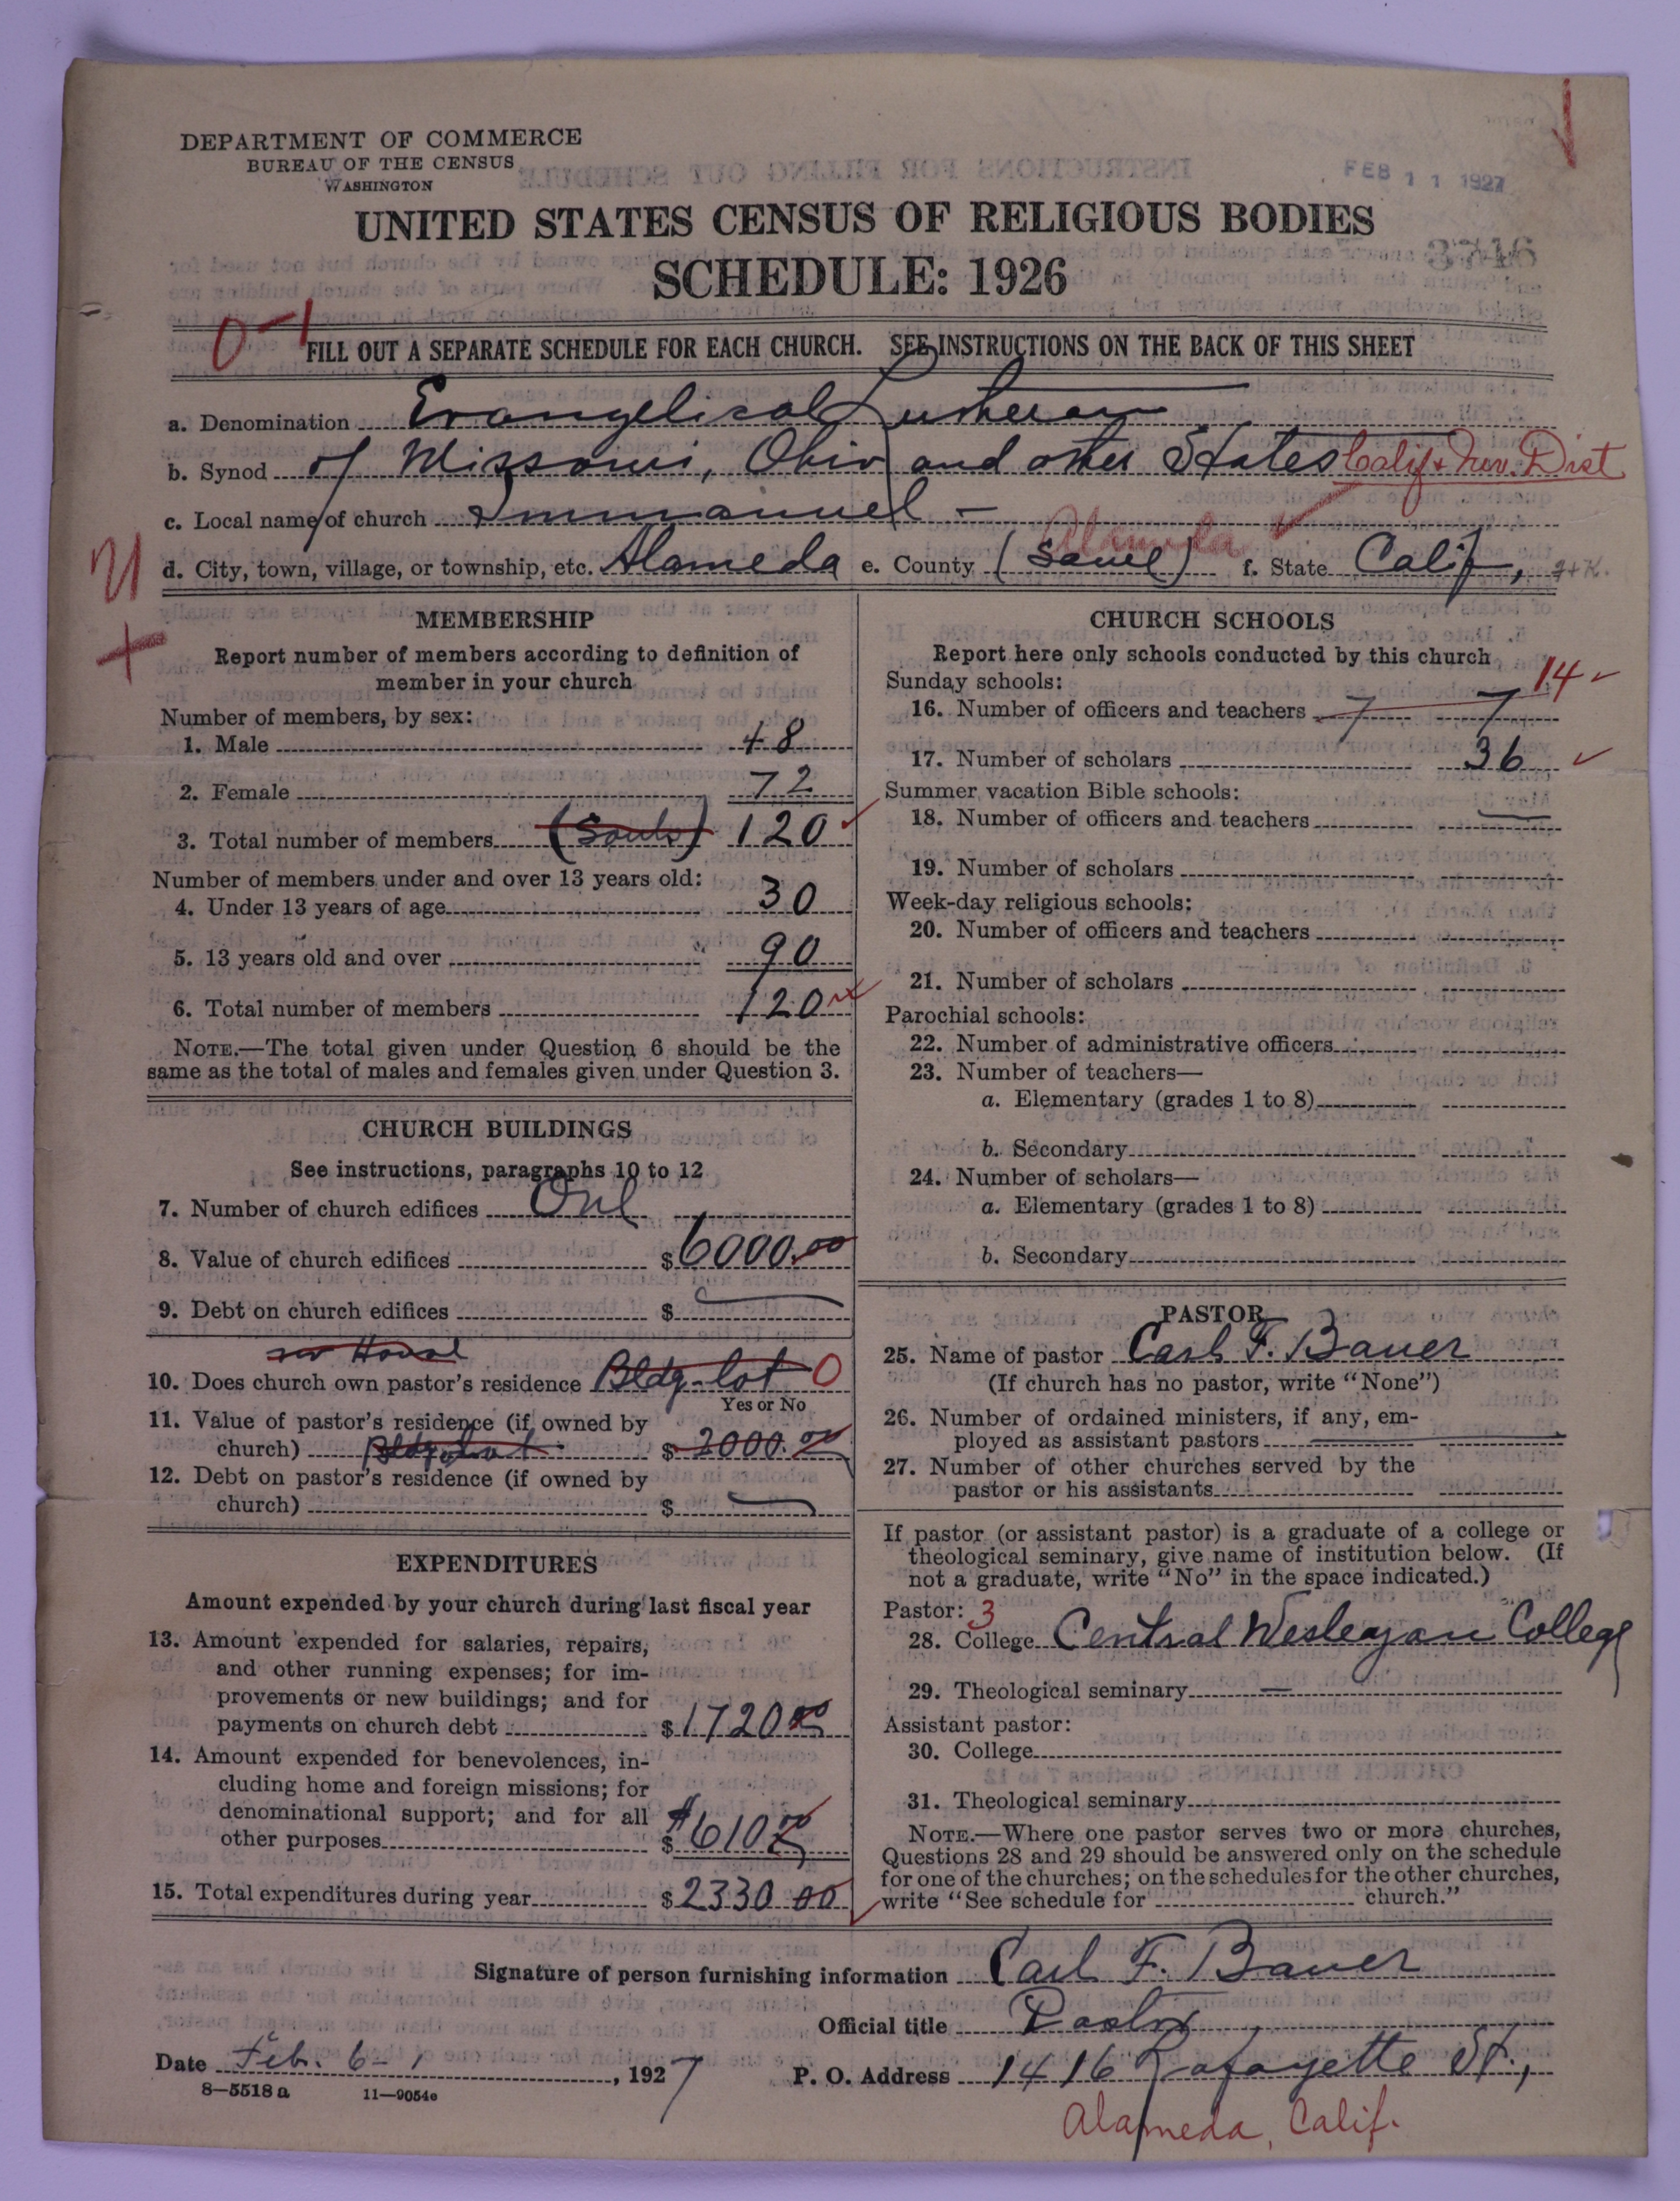 DEPARTMENT OF COMMERCE
BUREAU OF THE CENSUS
WASHINGTON
FEB 11 1927
UNITED STATES CENSUS OF RELIGIOUS BODIES
SCHEDULE: 1926
3746
0-1
FILL OUT A SEPARATE SCHEDULE FOR EACH CHURCH. SEE INSTRUCTIONS ON THE BACK OF THIS SHEET
a. Denomination Evangelical Lutheran
b. Synod of Missouri, Ohio and other States Calif & Nev. Dist
c. Local name of church Immanuel -
d. City, town, village, or township, etc. Alameda e. County (Same) Alameda f. State Calif,
MEMBERSHIP
Report number of members according to definition of
member in your church
Number of members, by sex:
1. Male 48
2. Female 72
3. Total number of members (Souls) 120
Number of members under and over 13 years old:
4. Under 13 years of age 30
5. 13 years old and over 90
6. Total number of members 120
NOTE.—The total given under Question 6 should be the
same as the total of males and females given under Question 3.
CHURCH BUILDINGS
See instructions, paragraphs 10 to 12
7. Number of church edifices One
8. Value of church edifices $6000.00
9. Debt on church edifices $
10. Does church own pastor's residence Bldg-lot 0
Yes or No
11. Value of pastor's residence (if owned by
church) Bldg lot $2000.00
12. Debt on pastor's residence (if owned by
church) $
EXPENDITURES
Amount expended by your church during last fiscal year
13. Amount expended for salaries, repairs,
and other running expenses; for im-
provements or new buildings; and for
payments on church debt $1720 00
14. Amount expended for benevolences, in-
cluding home and foreign missions; for
denominational support; and for all
other purposes $ $610 00
15. Total expenditures during year $2330 00
CHURCH SCHOOLS
Report here only schools conducted by this church
Sunday schools: 14
16. Number of officers and teachers 7 7
17. Number of scholars 36
Summer vacation Bible schools:
18. Number of officers and teachers
19. Number of scholars
Week-day religious schools:
20. Number of officers and teachers
21. Number of scholars
Parochial schools:
22. Number of administrative officers
23. Number of teachers—
a. Elementary (grades 1 to 8)
b. Secondary
24. Number of scholars—
a. Elementary (grades 1 to 8)
b. Secondary
PASTOR
25. Name of pastor Carl F. Bauer
(If church has no pastor, write "None")
26. Number of ordained ministers, if any, em-
ployed as assistant pastors
27. Number of other churches served by the
pastor or his assistants
If pastor (or assistant pastor) is a graduate of a college or
theological seminary, give name of institution below. (If
not a graduate, write "No" in the space indicated.)
Pastor: 3
28. College Central Wesleyan College
29. Theological seminary —
Assistant pastor:
30. College
31. Theological seminary
NOTE.—Where one pastor serves two or more churches,
Questions 28 and 29 should be answered only on the schedule
for one of the churches; on the schedules for the other churches,
write "See schedule for church."
Signature of person furnishing information Carl F. Bauer
Official title Pastor
Date Feb. 6-, 1927 P. O. Address 1416 Lafayette St.,
8—5518a 11—9054e
Alameda, Calif.